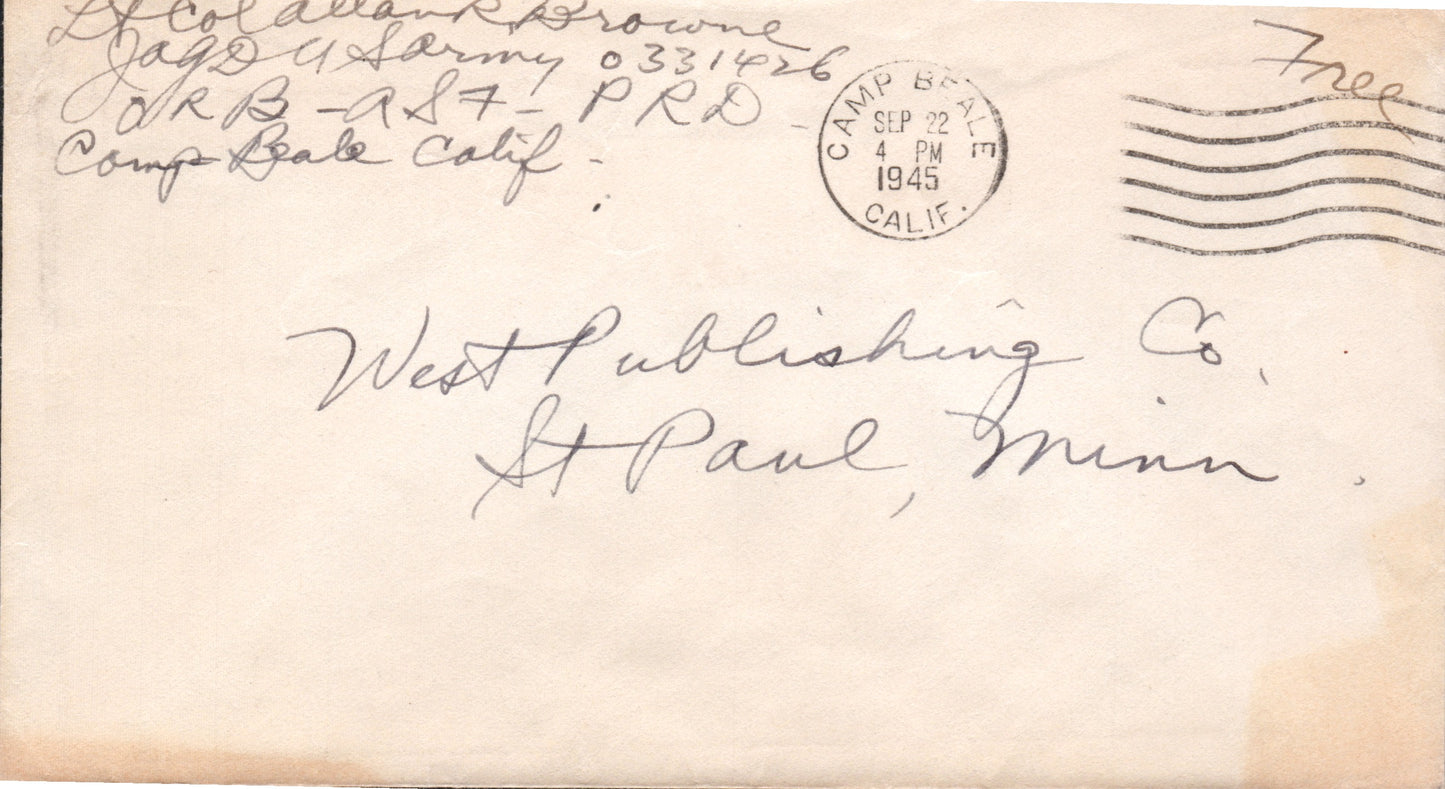 Lt Col Allan R Browne
JagD U S Army 0331426
ORB - ASF - PRD -
Camp Beale Calif -
Free
CAMP BEALE
SEP 22
4 PM
1945
CALIF.
West Publishing Co.
St Paul, Minn.